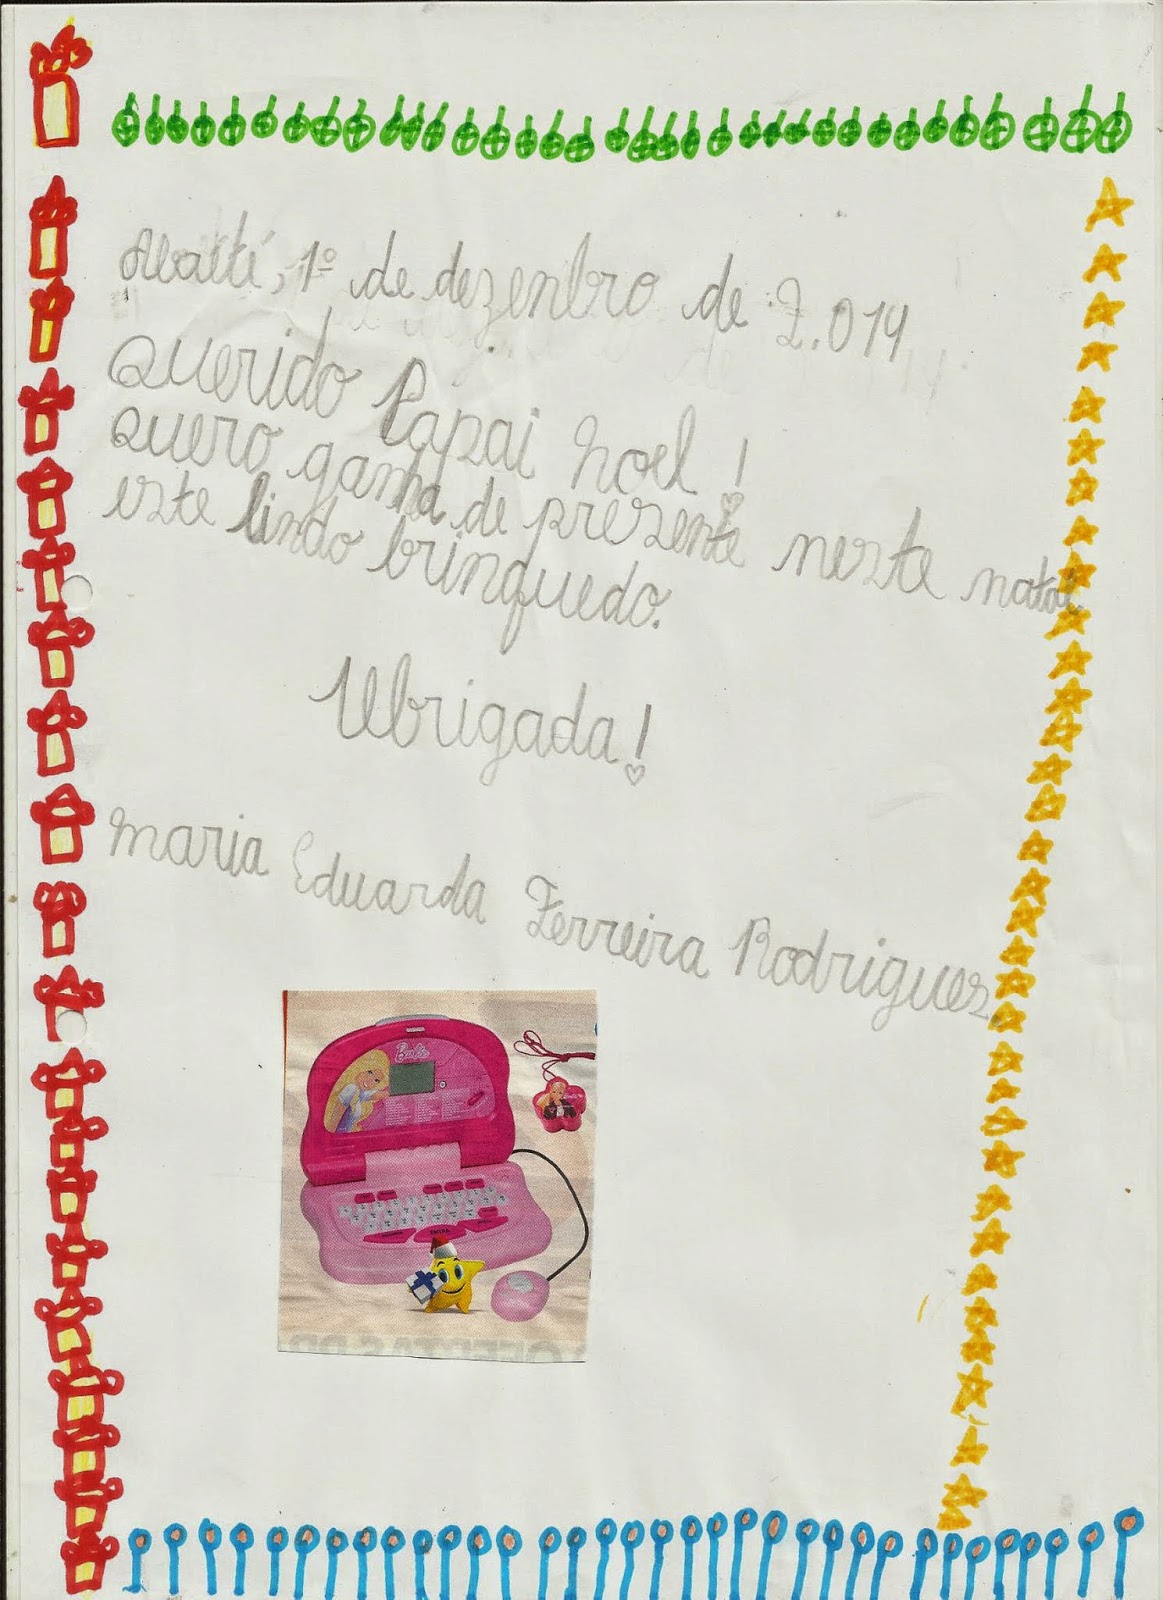 Abatiá, 1º de dezenbro de 2.014
Querido Papai Noel!
Quero ganha de prezente nezte natal
ezte lindo brinquedo.
Obrigada!
Maria Eduarda Ferreira Rodriguez
Barbie